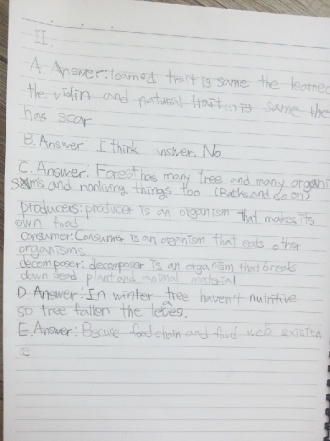 II.
A. Answer: learned trait is same the learned
the violin and natural trait is same the
has scar
B. Answer I think answer. No
C. Answer: Forest has many tree and many organi
sms and nonliving things too (Rocks and so on)
producers: producer is an organism that makes its
own food
consumer: Consumer is an organism that eats other
organisms
decomposer: decomposer is an organism that breaks
down dead plant and animal material
D. Answer: In winter tree haven't nutritive
so tree fallen the leaves.
E. Answer: Becuse food chain and food web